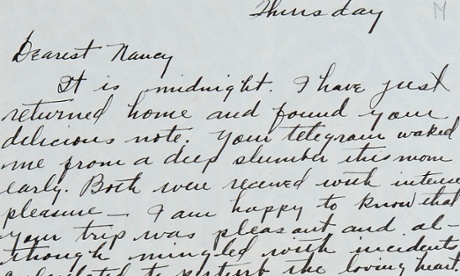 Thursday
M
Dearest Nancy
It is midnight. I have just
returned home and found your
delicious note. Your telegram waked
me from a deep slumber this morn
early. Both were received with intense
pleasure — I am happy to know that
your trip was pleasant and al-
though mingled with incidents
calculated to perturb the loving heart